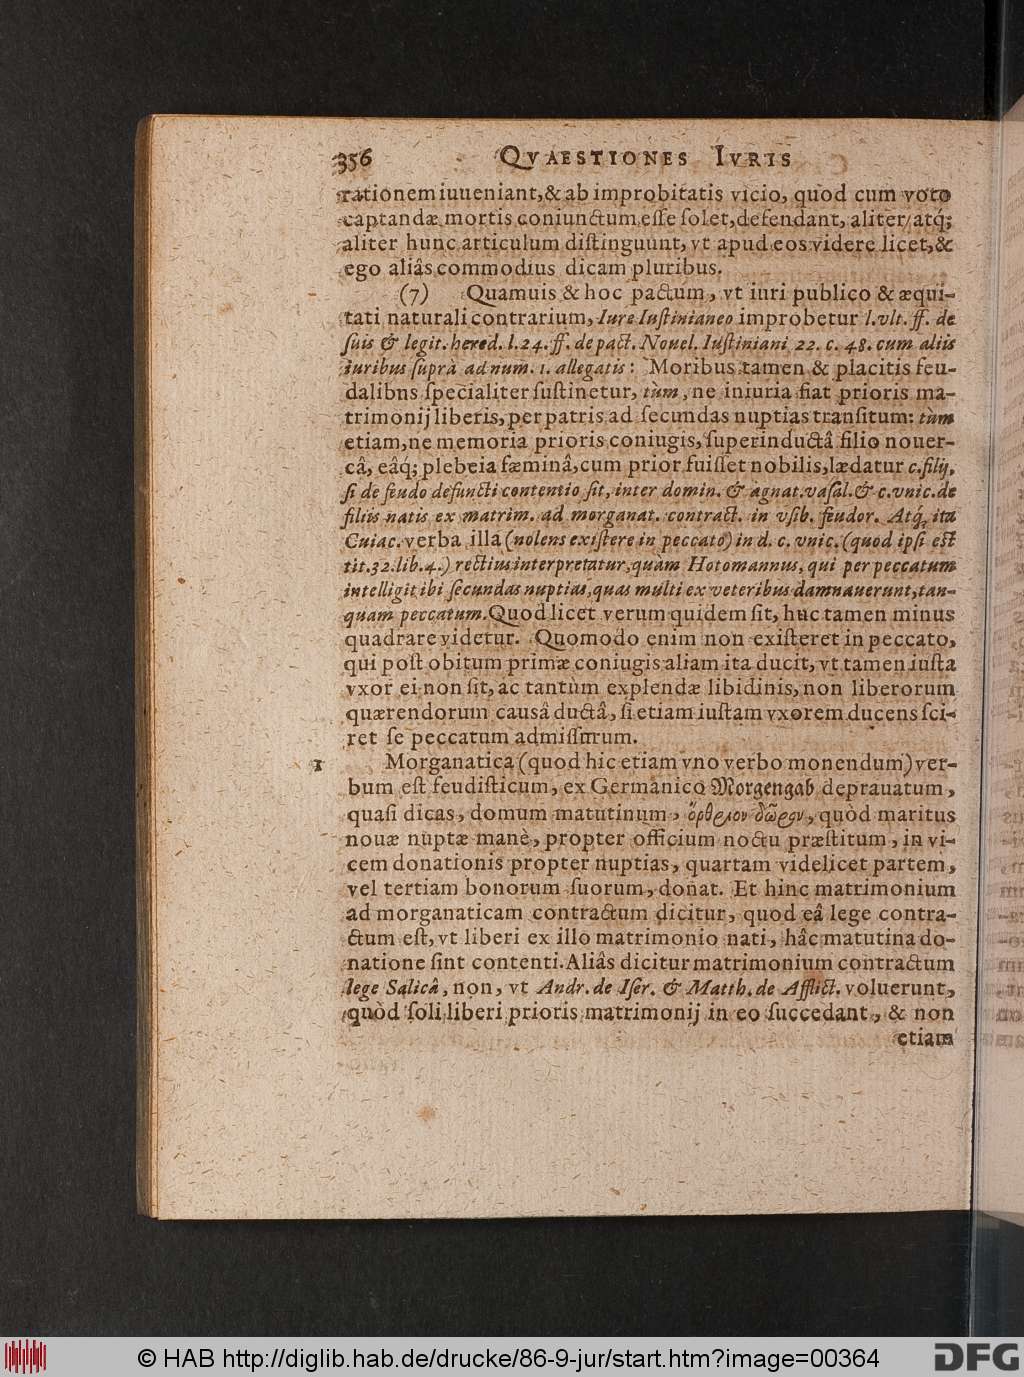 356 QVAESTIONES IVRIS
rationem iuueniant, & ab improbitatis vicio, quod cum voto
captandæ mortis coniunctum esse solet, defendant, aliter atq́;
aliter hunc articulum distinguunt, vt apud eos videre licet, &
ego aliâs commodius dicam pluribus.
(7) Quamuis & hoc pactum, vt iuri publico & æqui-
tati naturali contrarium, Iure Iustinianeo improbetur l. vlt. ff. de
suis & legit. hered. l. 24. ff. de pact. Nouel. Iustiniani 22. c. 48. cum aliis
iuribus suprà ad num. 1. allegatis: Moribus tamen & placitis feu-
dalibus specialiter sustinetur, tùm, ne iniuria fiat prioris ma-
trimonij liberis, per patris ad secundas nuptias transitum: tùm
etiam, ne memoria prioris coniugis, superinductâ filio nouer-
câ, eâq́; plebeia fæminâ, cum prior fuisset nobilis, lædatur c. filij,
si de feudo defuncti contentio sit, inter domin. & agnat. vasal. & c. vnic. de
filiis natis ex matrim. ad morganat. contract. in vsib. feudor. Atq́, ita
Cuiac. verba illa (nolens existere in peccato) in d. c. vnic. (quod ipsi est
tit. 32. lib. 4.) rectius interpretatur, quàm Hotomannus, qui per peccatum
intelligit ibi secundas nuptias, quas multi ex veteribus damnauerunt, tan-
quam peccatum. Quod licet verum quidem sit, huc tamen minus
quadrare videtur. Quomodo enim non existeret in peccato,
qui post obitum primæ coniugis aliam ita ducit, vt tamen iusta
vxor ei non sit, ac tantùm explendæ libidinis, non liberorum
quærendorum causâ ductâ, si etiam iustam vxorem ducens sci-
ret se peccatum admissurum.
1 Morganatica (quod hic etiam vno verbo monendum) ver-
bum est feudisticum, ex Germanico Morgengab deprauatum,
quasi dicas, domum matutinum, ὄρθριον δῶρον, quòd maritus
nouæ nuptæ manè, propter officium noctu præstitum, in vi-
cem donationis propter nuptias, quartam videlicet partem,
vel tertiam bonorum suorum, donat. Et hinc matrimonium
ad morganaticam contractum dicitur, quod eâ lege contra-
ctum est, vt liberi ex illo matrimonio nati, hâc matutina do-
natione sint contenti. Aliâs dicitur matrimonium contractum
lege Salicâ, non, vt Andr. de Iser. & Matth. de Afflict. voluerunt,
quòd soli liberi prioris matrimonij in eo succedant, & non
etiam
© HAB http://diglib.hab.de/drucke/86-9-jur/start.htm?image=00364
DFG